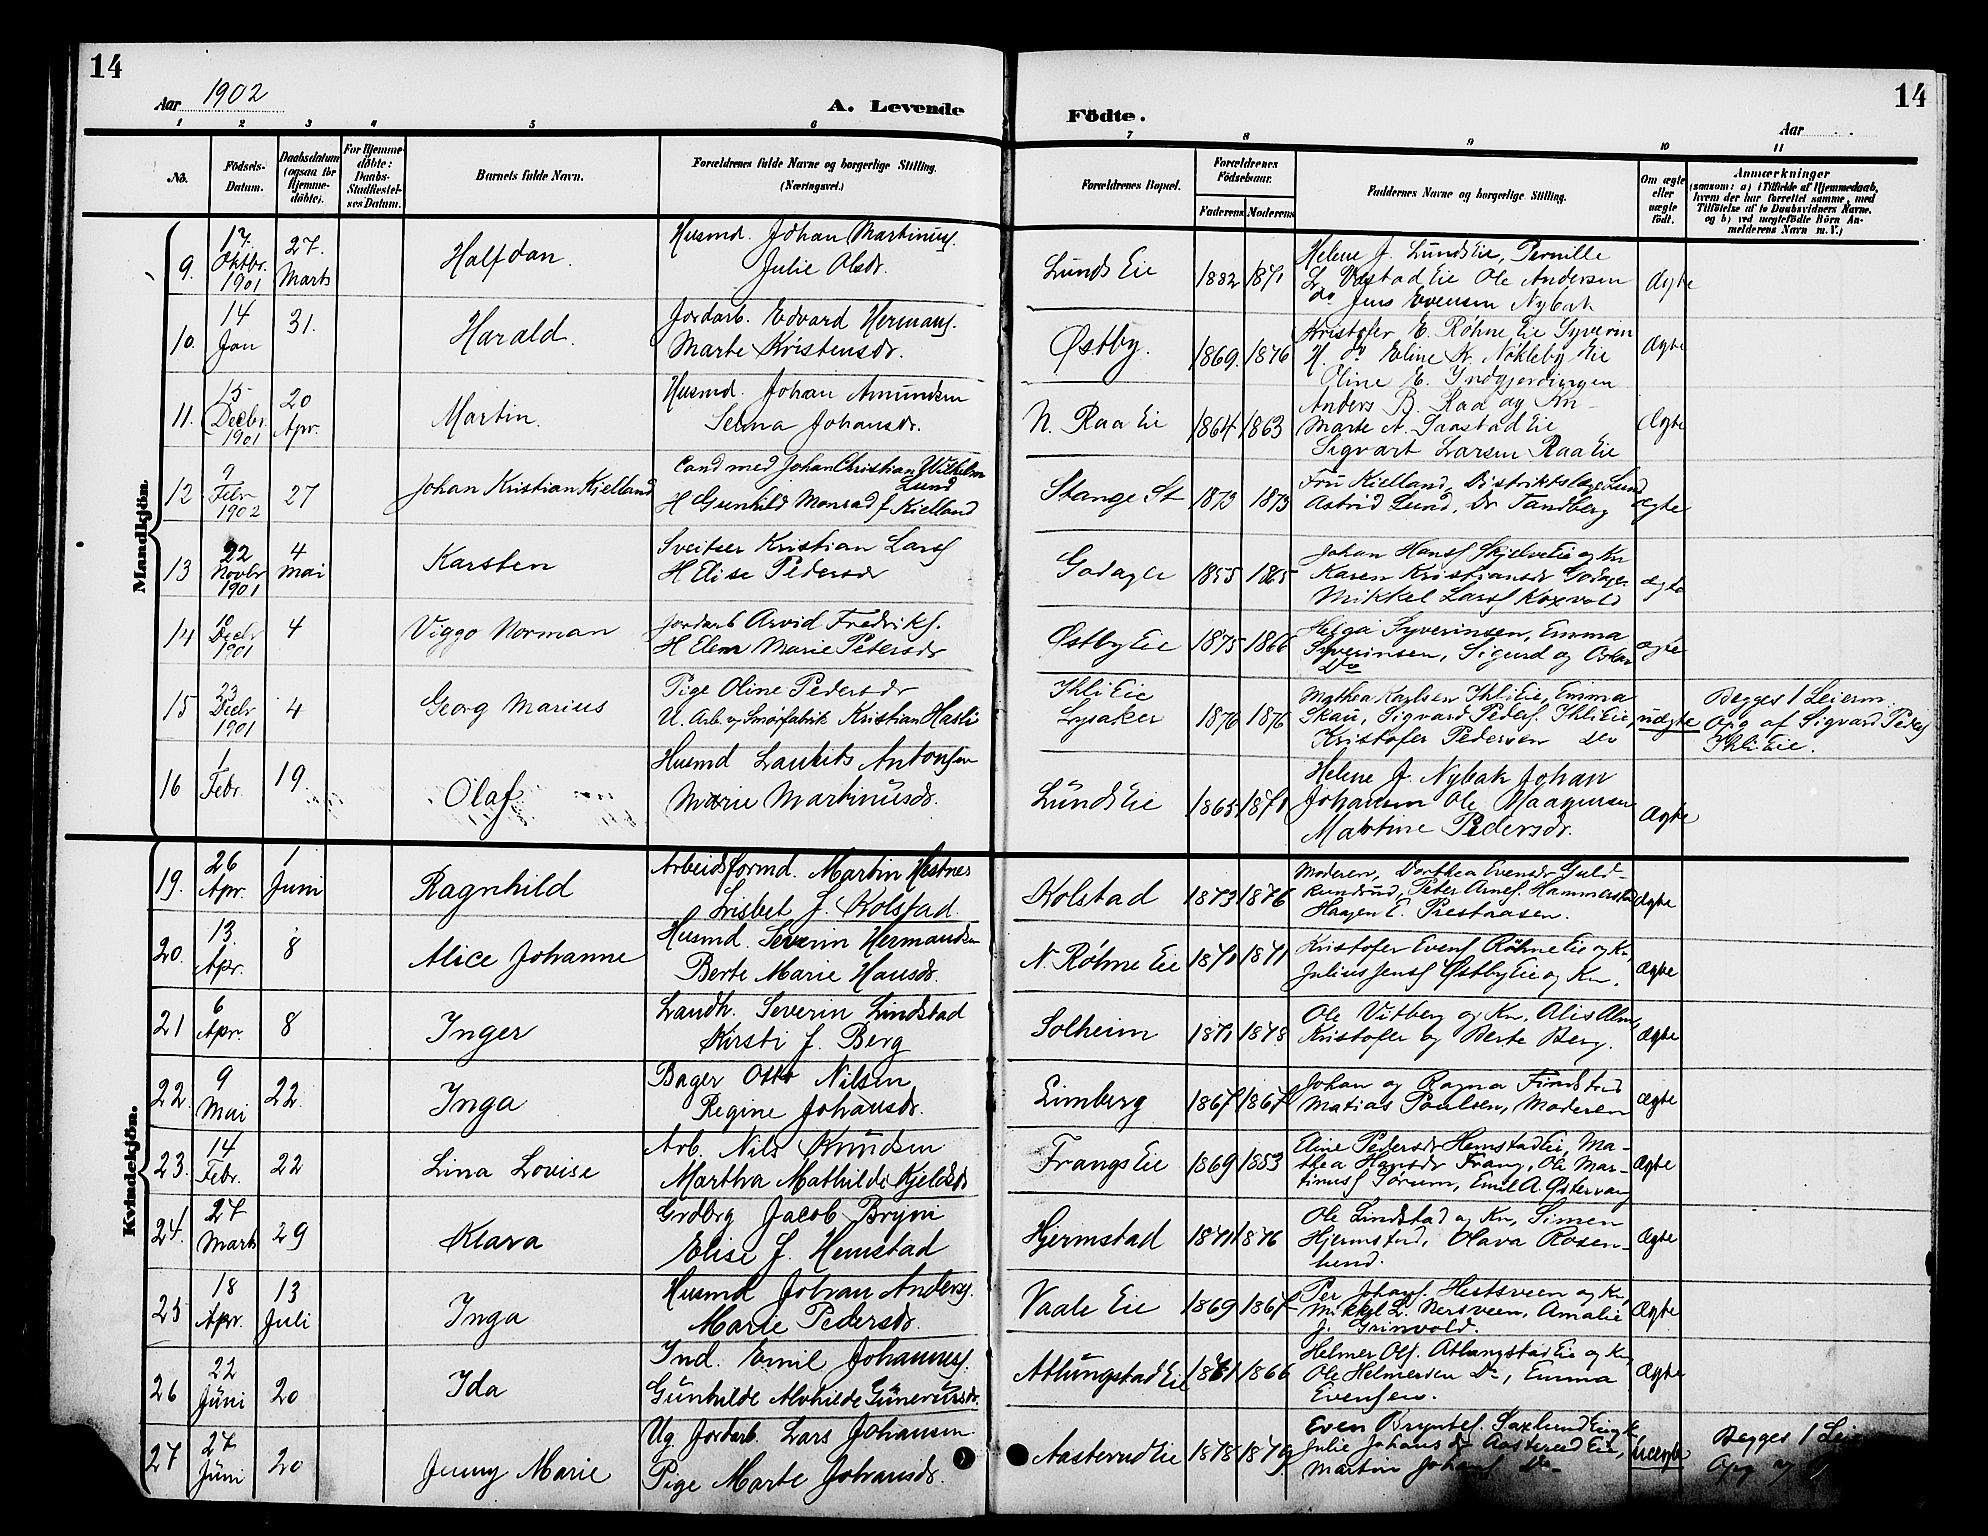 14
Aar 1902
A. Levende
Födte.
Aar
14
1 2 3 4 5 6 7 8 9 10 11
No.
Födsels-Datum.
Daabsdatum (ogsaa for Hjemmedöbte).
For Hjemmedöbte: Daabs-Stadfæstelses Datum.
Barnets fulde Navn.
Forældrenes fulde Navne og borgerlige Stilling. (Næringsvei.)
Forældrenes Bopæl.
Forældrenes Födselsaar.
Faderens Moderens
Faddernes Navne og borgerlige Stilling.
Om ægte eller uægte födt.
Anmærkninger
(saasom: a) i Tilfælde af Hjemmedaab, hvem der har forrettet samme, med Tilföielse af to Daabsvidners Navne, og b) ved uægtefödte Börn Anmelderens Navn m. V.)
Mandkjön.
9. 17. Oktbr. 1901 27. Marts Halfdan. Husmd. Johan Martinus. Julie Olsdr. Lunds Eie 1882 1871 Helene J. Lunds Eie, Pernille Vestad Eie Ole Andersen do Jens Evensen Nybak Ægte
10. 14 Jan 31. Harald. Jordarb. Edvard Hermans. Marte Kristensdr. Østby. 1869. 1876 Kristofer E. Røhne Eie Syverin H. do Eline Nökleby Eie Oline E. Indgjerdingen Ægte
11. 15 Decbr. 1901 20 Apr. Martin. Husmd. Johan Amundsen Selma Johansdr. N. Raa Eie 1864 1863 Anders B. Raa og Kn Marte A. Saastad Eie Sigvart Larsen Raa Eie Ægte
12 9 Febr 1902 27 Johan Kristian Kielland Cand med Johan Christian Wilhelm Lund H Gunhild Monrad f Kielland Stange St 1872 1873 Fru Kielland, Distriktslæge Lund Astrid Lund, Dr Tandberg ægte
13 22 Novbr 1901 4 Mai Karsten Sveitser Kristian Larsf H Elise Pedersdr Godager 1855 1865 Johan Hansf Skjelve Eie og Kn Karen Kristiansdr Godager Mikkel Larsf Koxvold ægte
14 Decbr 1901 4 Viggo Norman Jordarb Arvid Fredriks. H Elen Marie Petersdr Østby Eie 1875 1866 Helga Syverinsen, Emma Syverinsen, Sigurd og Oskar Do ægte
15 23 Decbr 1901 4 Georg Marius Pige Oline Pedersdr U. Arb. v Smörfabrik Kristian Hasli Ihli Eie Lysaker 1876 1876 Mathea Karlsen Ihli Eie, Emma Skau, Sigvard Pedersf. Ihli Eie, Kristofer Pedersen do uægte Begges 1 Leierm. Opg af Sigvard Pedersf Ihli Eie.
16 1 Febr. 19. Olaf Husmd Laurits Antonsen Marie Martinusdr. Lunds Eie 1865 1871 Helene J. Nybak Johan Johansen Ole Maagensen Martine Pedersdr. Ægte
Kvindekjön.
19. 26 Apr. 1 Juni Ragnhild Arbeidsformd. Martin Hestnes Lisbet f. Kolstad. Kolstad 1873 1876 Moderen, Dorthea Evensdr Guldkundrud, Peter Arnes. Hammerstad Haagen E. Prestaasen. Ægte
20. 13 Apr. 8 Alice Johanne Husmd. Severin Hermansen Berte Marie Hansdr. N. Røhne Eie 1870 1871 Kristofer Evens Røhne Eie og Kn, Julius Jensf Østby Eie og Kn. Ægte
21 6 Apr. 8 Inger Landh. Severin Lindstad Kirsti f. Berg Solheim 1871 1878 Ole Vitberg og Kn, Alis Alm Kristofer og Berte Berg. Ægte
22 9 Mai 22. Inga Bager Otto Nilsen Regine Johansdr. Limberg 1867 1867 Johan og Ragna Finstad Matias Paulsen, Moderen Ægte
23. 14 Febr. 22 Lina Lovise Arb. Nils Knudsen Martha Mathilde Kjeldsdr Frangs Eie 1869 1853 Eline Pedersdr Hemstad Eie, Mathea Hansdr Frang, Ole Martinusf Sørum, Emil A. Østervang Ægte
24. 27 Marts 29 Klara Grdbrg Jacob Bryni Elise f. Hemstad Hjermstad 1871 1876 Ole Lindstad og Kn, Simen Hjermstad, Olava Rosenlund. Ægte
25 18 Apr. 13 Juli Inga Husmd Johan Anders. Marie Pedersdr. Vaale Eie 1869 1867 Per Johans. Hestsveen og Kn, Mikkel L. Nersveen, Amalie J. Grinvold. Ægte
26 22 Juni 20 Ida Ind. Emil Johannes. Gunhilde Alvhilde Gunerusdr. Atlungstad Eie 1861 1866 Helmer Ols. Atlungstad Eie og Kn, Ole Helmersen Do, Emma Evensen. Ægte
27 27 Juni 20 Jenny Marie Ug Jordarb. Lars Johansen Pige Marte Johansdr. Aasterud Eie 1878 1879 Even Bryntes. Saxlund Eie Julie Johansdr Aasterud Eie, Martin Johansf Do Uægte Begges 1 Leie Opg af